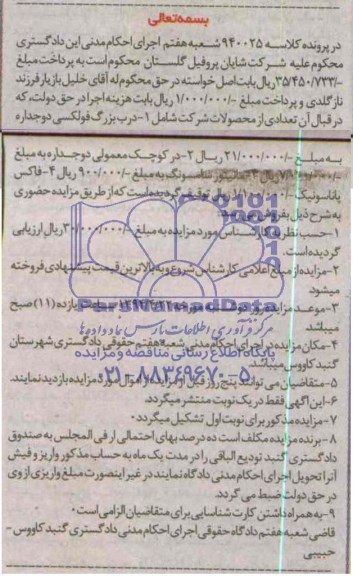 بسمه تعالی
در پرونده کلاسه ۹۴۰۰۲۵ شعبه هفتم اجرای احکام مدنی این دادگستری
محکوم علیه شرکت شایان پروفیل گلستان محکوم است به پرداخت مبلغ
۳۵/۴۵۰/۷۳۳/- ریال بابت اصل خواسته در حق محکوم له آقای خلیل بازیار فرزند
نازگلدی و پرداخت مبلغ ۱/۰۰۰/۰۰۰/- ریال بابت هزینه اجرا در حق دولت، که
در قبال آن تعدادی از محصولات شرکت شامل ۱- درب بزرگ فولکسی دوجداره
به مبلغ ۲۱/۰۰۰/۰۰۰/- ریال ۲- در کوچک معمولی دوجداره به مبلغ
ریال ۳- مانیتور سامسونگ به مبلغ ۹۰۰/۰۰۰/- ریال ۴- فاکس
پاناسونیک ریال توقیف گردیده است که از طریق مزایده حضوری
به شرح ذیل بفروش می رسد.
۱- حسب نظریه کارشناس مورد مزایده به مبلغ ۳۰/۰۰۰/۰۰۰/- ریال ارزیابی
گردیده است.
۲- مزایده از مبلغ اعلامی کارشناس شروع و به بالاترین قیمت پیشنهادی فروخته
میشود
۳- موعد مزایده روز دوشنبه مورخه ساعت یازده (۱۱) صبح
میباشد
مرکز فرآوری اطلاعات پارس نماد داده ها
۴- مکان مزایده در اجرای احکام مدنی شعبه هفتم حقوقی دادگستری شهرستان
گنبد کاووس میباشد.
پایگاه اطلاع رسانی مناقصه و مزایده
۵- متقاضیان می توانند پنج روز قبل از مزایده از اموال مورد مزایده بازدید نمایند.
۰۲۱-۸۸۳۴۹۶۷۰-۵
۶- این آگهی فقط در یک نوبت منتشر میگردد.
۷- مزایده مذکور برای نوبت اول تشکیل میگردد.
۸- برنده مزایده مکلف است ده درصد بهای احتمالی را فی المجلس به صندوق
دادگستری گنبد تودیع الباقی را در مدت یک ماه به حساب مذکور واریز و فیش
آنرا تحویل اجرای احکام مدنی دادگاه نمایند در غیر اینصورت مبلغ واریزی از وی
در حق دولت ضبط می گردد.
۹- به همراه داشتن کارت شناسایی برای متقاضیان الزامی است.
قاضی شعبه هفتم دادگاه حقوقی اجرای احکام مدنی دادگستری گنبد کاووس -
حبیبی